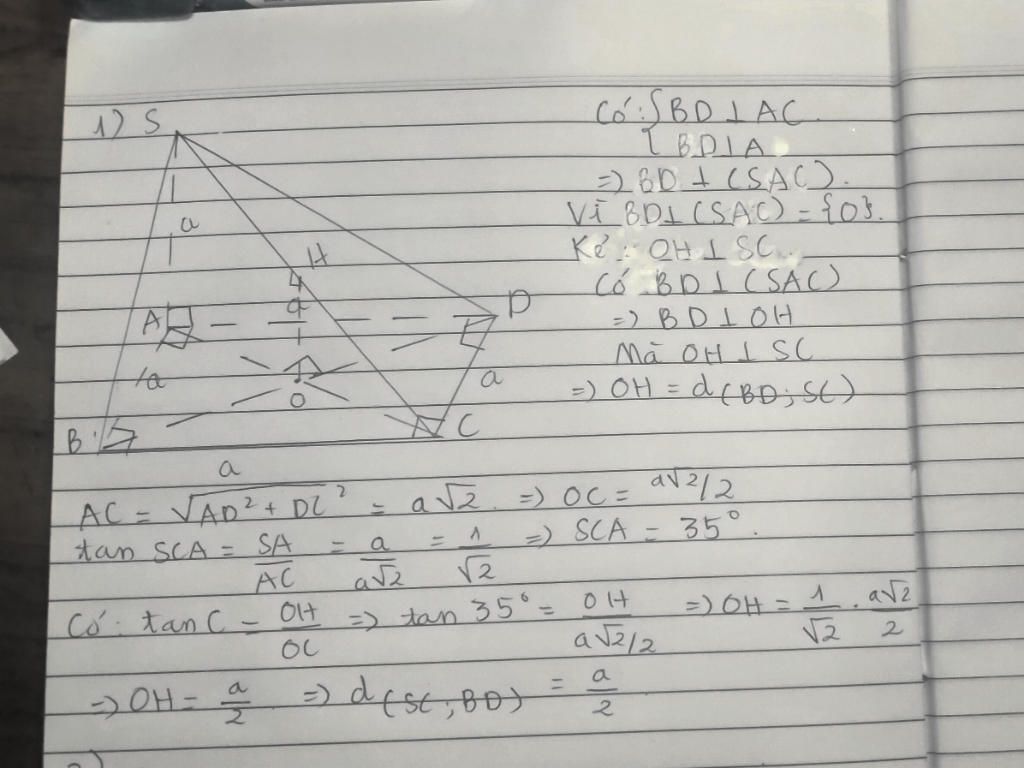 1) S
a
H
A
D
a
O
a
B
C
a
Có: { BD ⊥ AC
{ BD ⊥ A
=> BD ⊥ (SAC).
Vì BD ⊥ (SAC) = {O}.
Kẻ: OH ⊥ SC
Có BD ⊥ (SAC)
=> BD ⊥ OH
Mà OH ⊥ SC
=> OH = d(BD; SC)
AC = √(AD² + DC²) = a√2 => OC = a√2/2
tan SCA = SA/AC = a/a√2 = 1/√2 => SCA = 35°.
Có: tan C = OH/OC => tan 35° = OH/(a√2/2) => OH = 1/√2 . a√2/2
=> OH = a/2 => d(SC; BD) = a/2